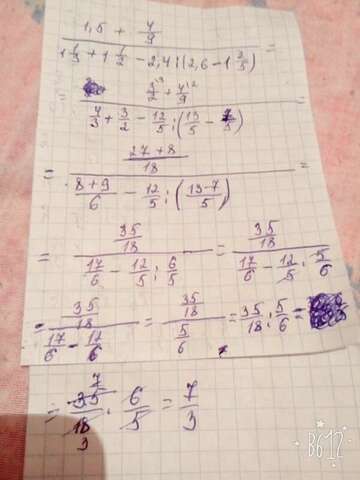 (1,5 + 4/9) / (1 1/3 + 1 1/2 - 2,4 : (2,6 - 1 2/5)) =
(3/2 + 4/9) / (4/3 + 3/2 - 12/5 : (13/5 - 7/5))
= ((27 + 8)/18) / ((8+9)/6 - 12/5 : ((13-7)/5)) =
= (35/18) / (17/6 - 12/5 : 6/5) = (35/18) / (17/6 - 12/5 : 5/6)
= (35/18) / (17/6 - 12/6) = (35/18) / (5/6) = 35/18 : 5/6 =
= 35/18 : 6/5 = 7/3
B612